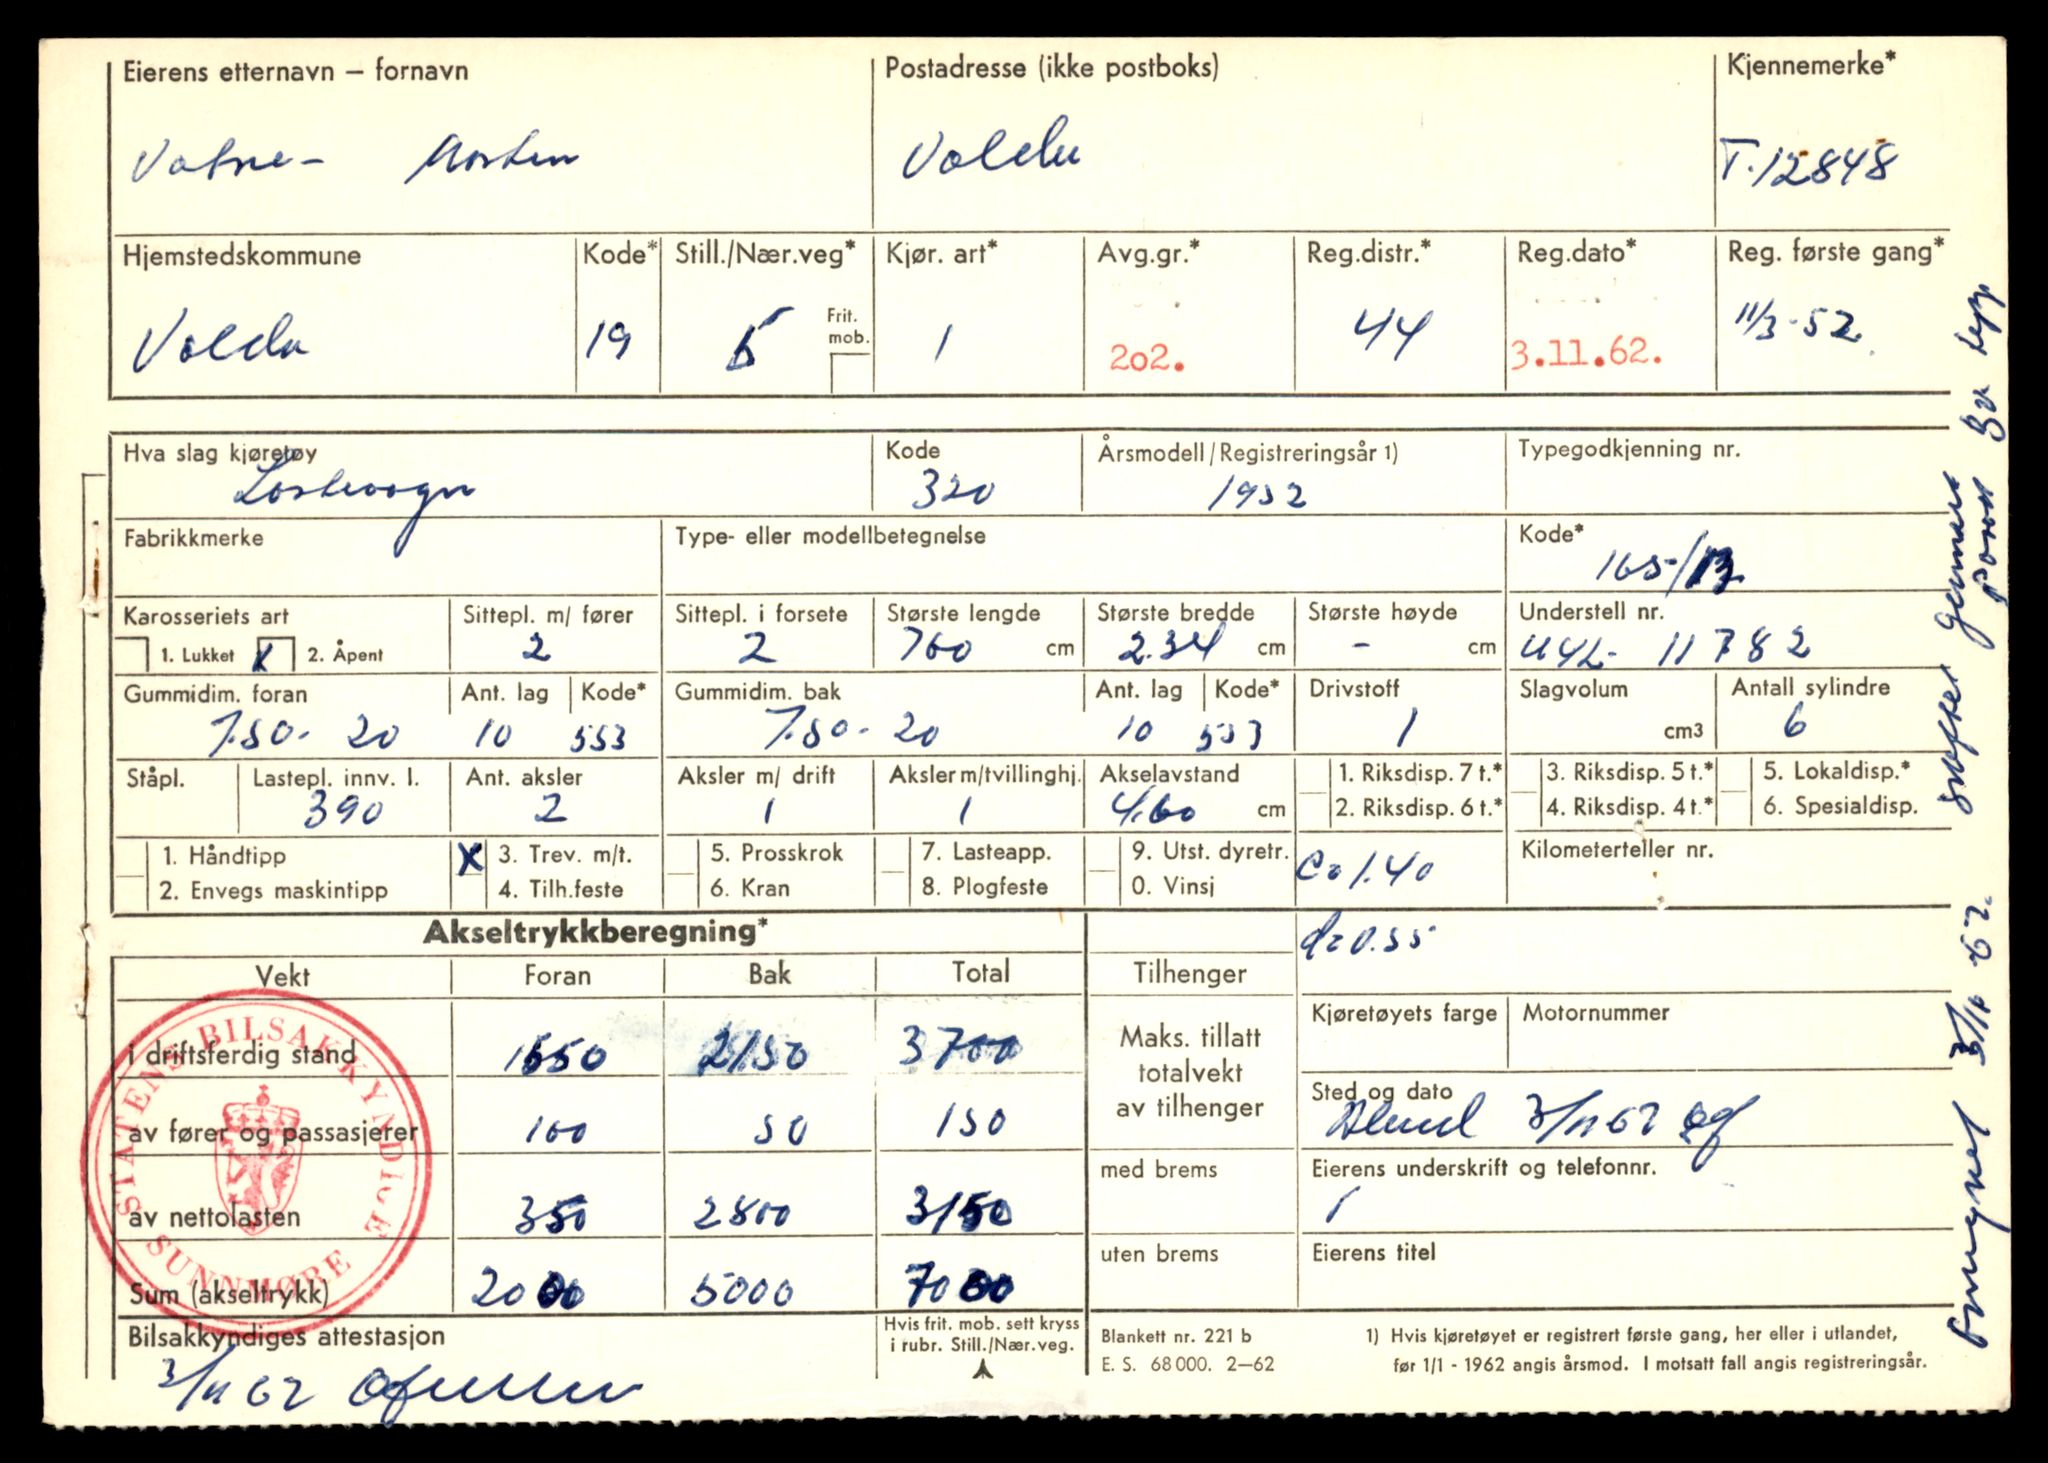 Eierens etternavn – fornavn Postadresse (ikke postboks) Kjennemerke*
Vatne - Morten Volda T.12848
Hjemstedskommune Kode* Still./Nær.veg* Kjør. art* Avg.gr.* Reg.distr.* Reg.dato* Reg. første gang*
Frit. mob.
Volda 19 5 1 202. 44 3.11.62. 11/3-52.
Hva slag kjøretøy Kode Årsmodell/Registreringsår 1) Typegodkjenning nr.
Lastevogn 320 1952
Fabrikkmerke Type- eller modellbetegnelse Kode*
165-/13
Karosseriets art Sittepl. m/ fører Sittepl. i forsete Største lengde Største bredde Største høyde Understell nr.
1. Lukket X 2. Åpent 2 2 760 cm 2.34 cm - cm U4L- 11782
Gummidim. foran Ant. lag Kode* Gummidim. bak Ant. lag Kode* Drivstoff Slagvolum Antall sylindre
7.50- 20 10 553 7.50- 20 10 553 1 cm3 6
Ståpl. Lastepl. innv. l. Ant. aksler Aksler m/ drift Aksler m/tvillinghj. Akselavstand 1. Riksdisp. 7 t.* 3. Riksdisp. 5 t.* 5. Lokaldisp.*
390 2 1 1 4.60 cm 2. Riksdisp. 6 t.* 4. Riksdisp. 4 t.* 6. Spesialdisp.
1. Håndtipp X 3. Trev. m/t. 5. Prosskrok 7. Lasteapp. 9. Utst. dyretr. Kilometerteller nr.
2. Envegs maskintipp 4. Tilh.feste 6. Kran 8. Plogfeste 0. Vinsj C=1.40
Akseltrykkberegning*
d=0.55
Vekt Foran Bak Total Tilhenger
Kjøretøyets farge Motornummer
i driftsferdig stand 1550 2150 3700
Maks. tillatt totalvekt av tilhenger
Sted og dato
av fører og passasjerer 100 50 150
Ålesund 3/11 62
med brems Eierens underskrift og telefonnr.
av nettolasten 350 2800 3150
uten brems Eierens titel
Sum (akseltrykk) 2000 5000 7000
STATENS BILSAKKYNDIGE SUNNMØRE
Bilsakkyndiges attestasjon
Hvis frit. mob. sett kryss
i rubr. Still./Nær.veg.
Blankett nr. 221 b
E. S. 68000. 2–62
1) Hvis kjøretøyet er registrert første gang, her eller i utlandet,
før 1/1 - 1962 angis årsmod. I motsatt fall angis registreringsår.
3/11 62
3/11 -62.